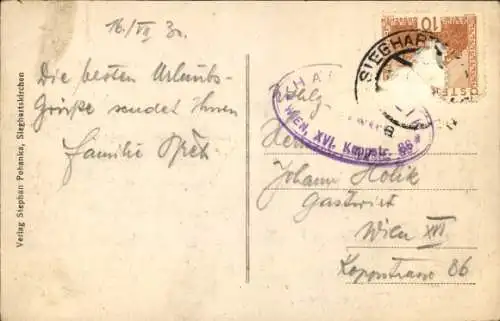 16./VII 30.
Die besten Urlaubs-
Grüße sendet Ihnen
Familie
Verlag Stephan Pohanka, Sieghartskirchen
10
ÖSTER
SIEGHAR
WIEN, XVI. Koppstr. 86
Wohlg.
Herrn
Johann Holik
Gastwirt
Wien XVI
Koppstrasse 86